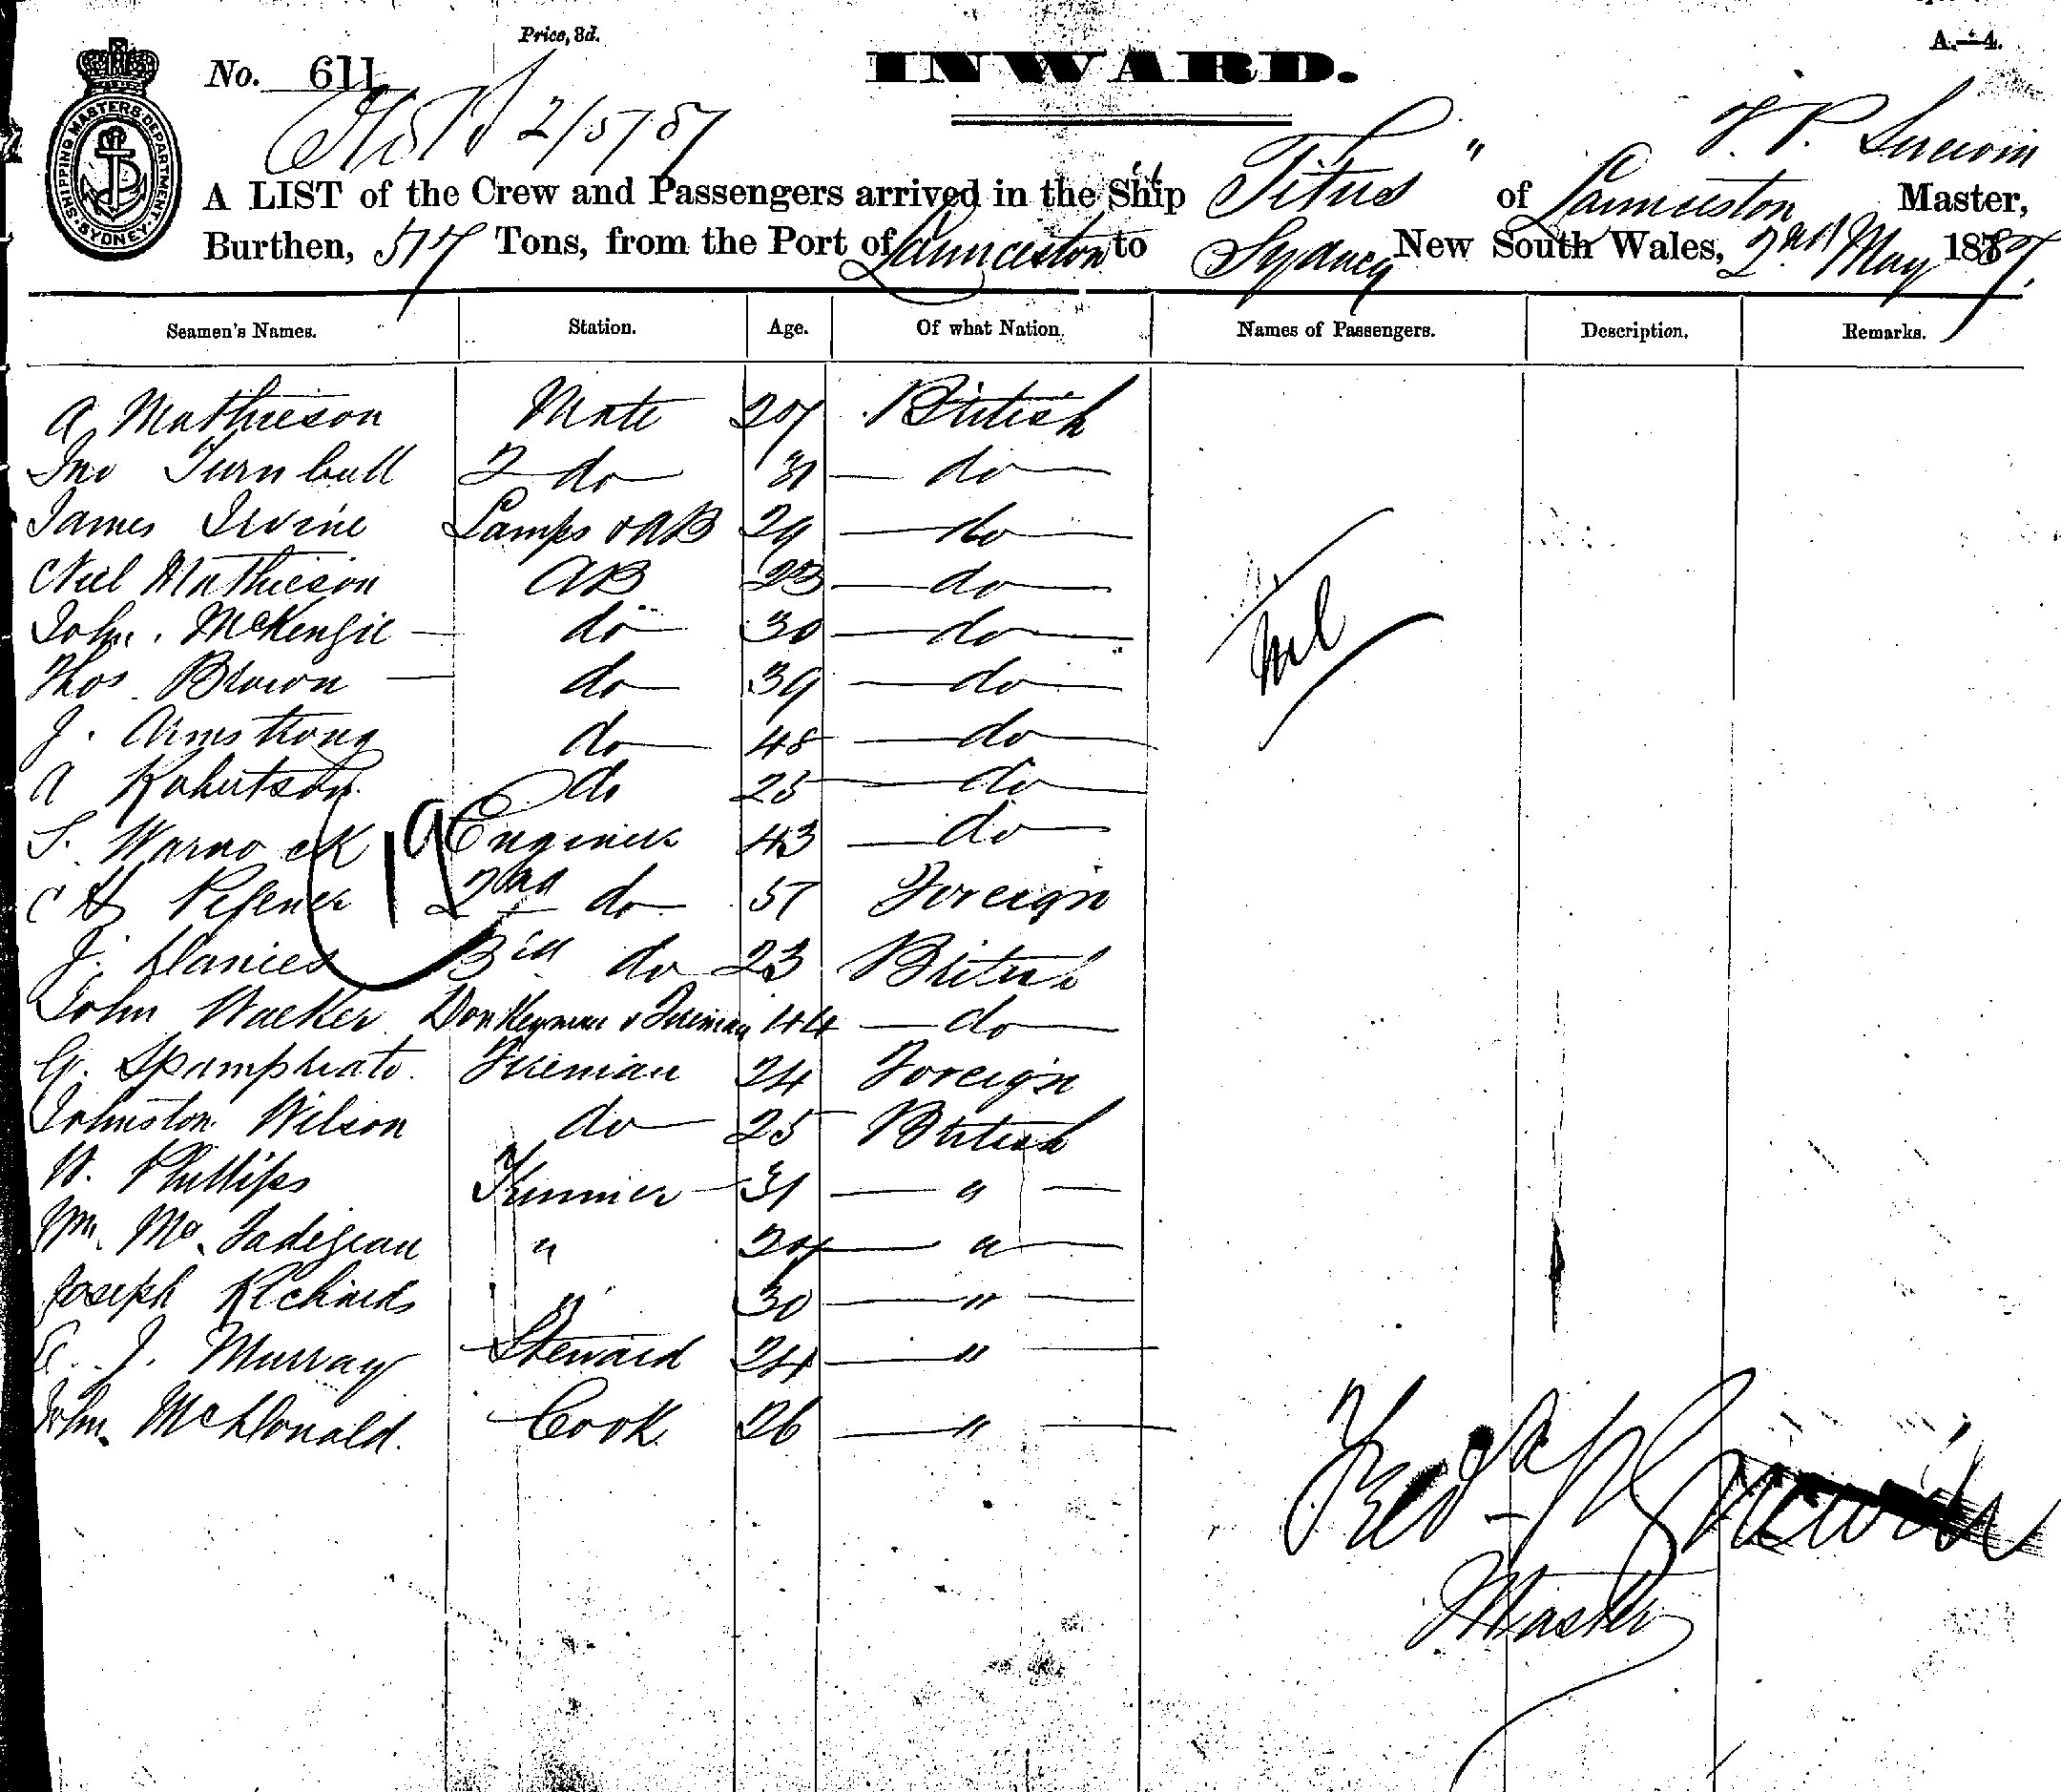 Price, 3d.
A.—4.
INWARD.
No. 611
2/5/87
SHIPPING MASTERS DEPARTMENT SYDNEY
A LIST of the Crew and Passengers arrived in the Ship "Titus" of Launceston F. P. Master,
Burthen, 577 Tons, from the Port of Launceston to Sydney New South Wales, 2nd May 1887.
Seamen's Names. Station. Age. Of what Nation. Names of Passengers. Description. Remarks.
A Mathieson Mate 27 British
Jno Turnbull 2 do 31 do
James Irvine Lamps & AB 29 do
Neil Mathieson AB 23 do
John McKenzie do 30 do
Nil
Thos Brown do 39 do
J. Armstrong do 48 do
A Robertson do 25 do
S. Warnock Engineer 43 do
19
C H 2nd do 57 Foreign
J. Davies 3rd do 23 British
John Walker Donkeyman & Fireman 44 do
G. Fireman 24 Foreign
Johnston Wilson do 25 British
W. Phillips Trimmer 31 "
Wm. " 24 "
Joseph Richards " 30 "
E. J. Murray Steward 24 "
John McDonald. Cook 26 "
Fred P
Master